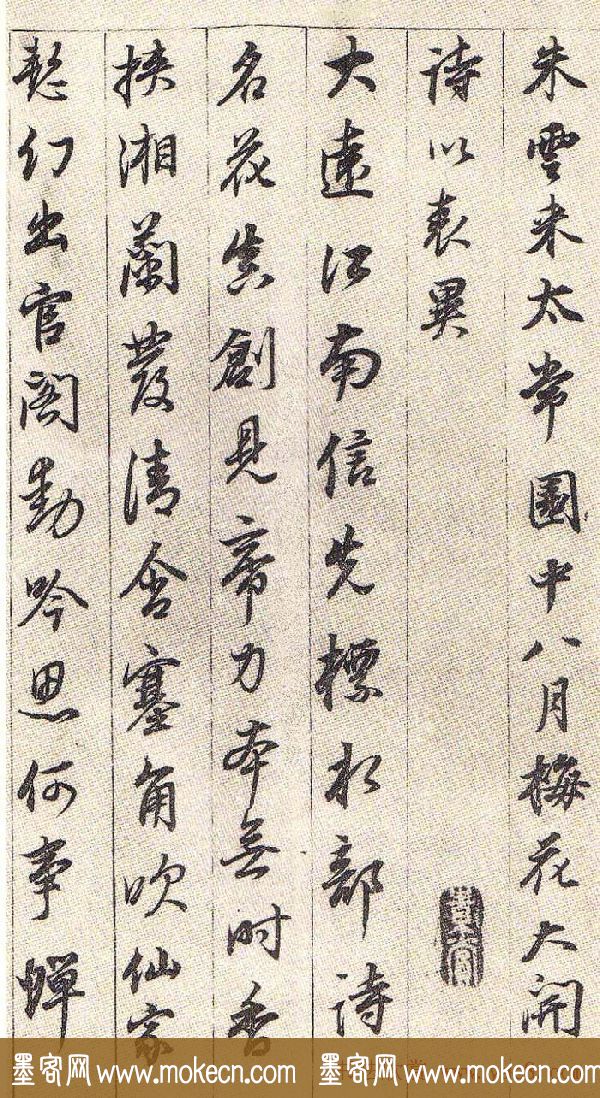 朱雲来太常園中八月梅花大開
诗以表異
大遠江南信先標水部诗
名花真創見帝力本無时香
挟湘蘭發清含塞角吹仙家
幻出官閣動吟思何事蟬
墨客网 www.mokecn.com 墨客网 www.mokecn.com